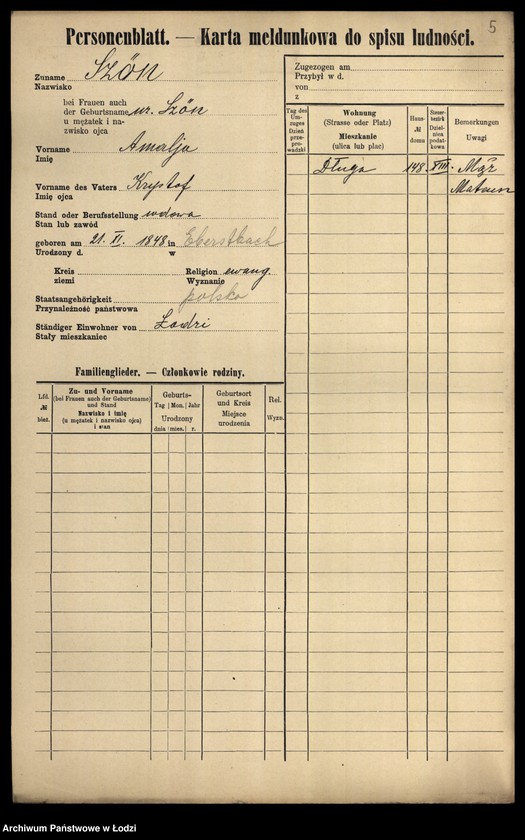 5
Personenblatt. — Karta meldunkowa do spisu ludności.
Zuname Szön
Nazwisko
bei Frauen auch
der Geburtsname ur. Szön
u mężatek i na-
zwisko ojca
Vorname Amalja
Imię
Vorname des Vaters Krystof
Imię ojca
Stand oder Berufsstellung wdowa
Stan lub zawód
geboren am 21. XI. 1848 in Eberstbach
Urodzony d. w
Kreis Religion ewang.
ziemi Wyznanie
Staatsangehörigkeit polska
Przynależność państwowa
Ständiger Einwohner von Łodzi
Stały mieszkaniec
Zugezogen am
Przybył w d.
von
z
Tag des
Um-
zuges
Dzień
prze-
prowadzki
Wohnung
(Strasse oder Platz)
Mieszkanie
(ulica lub plac)
Haus-
№
domu
Steuer-
bezirk
Dziel-
nica
podat-
kowa
Bemerkungen
Uwagi
Długa 148. XIII. Mąż
Mateusz
Familienglieder. — Członkowie rodziny.
Lfd.
№
bież.
Zu- und Vorname
(bei Frauen auch der Geburtsname)
und Stand
Nazwisko i imię
(u mężatek i nazwisko ojca)
i stan
Geburts-
Tag Mon. Jahr
Urodzony
dnia mies. r.
Geburtsort
und Kreis
Miejsce
urodzenia
Rel.
Wyzn.
Archiwum Państwowe w Łodzi